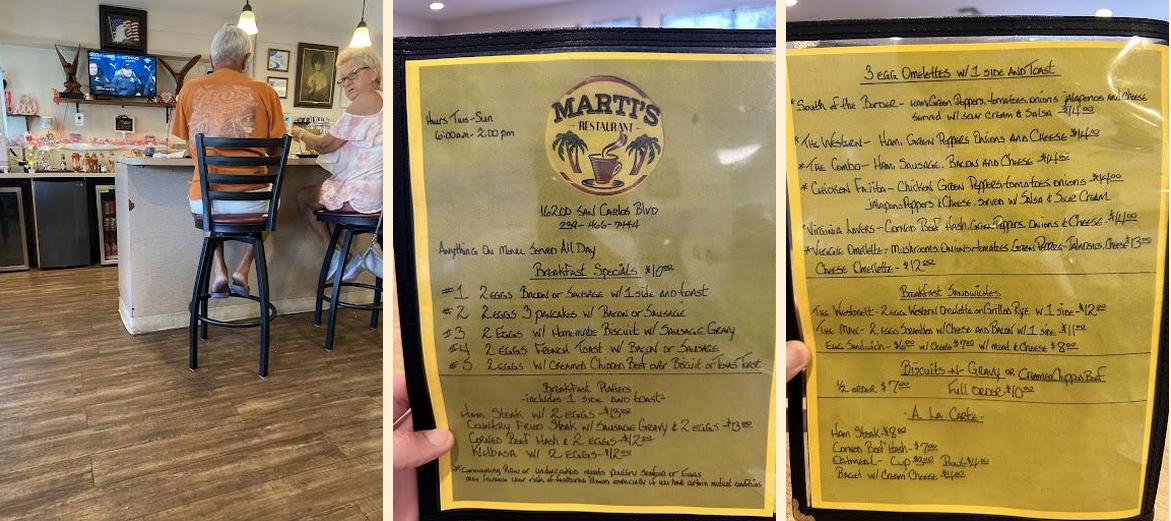 Hours Tues-Sun
6:00am-2:00pm
MARTI'S
RESTAURANT
16200 SAN CARLOS BLVD
239-466-
Anything On Menu Served All Day
Breakfast Specials $10.00
#1 2 eggs Bacon or Sausage w/ 1 side and toast
#2 2 eggs 3 pancakes w/ Bacon or Sausage
#3 2 Eggs w/ Homemade Biscuit w/ Sausage Gravy
#4 2 eggs French Toast w/ Bacon or Sausage
#5 2 eggs w/ Creamed Chipped Beef over Biscuit or Toast
Breakfast Platters
-includes 1 side and toast-
Ham Steak w/ 2 eggs-$13.00
Country Fried Steak w/ Sausage Gravy & 2 eggs-$13.00
Corned Beef Hash & 2 eggs-$12.00
Kielbasa w/ 2 eggs-$12.00
*Consuming Raw or undercooked meats poultry seafood or Eggs
may increase your risk of foodborne illness especially if you have certain medical conditions
3 EGG Omelettes w/ 1 SIDE AND TOAST
*South of the Border- Ham, Green Peppers, tomatoes, onions, jalapenos and cheese
served w/ sour cream & salsa $14.00
*The Western- Ham, Green Peppers Onions and Cheese $14.00
*The Combo- Ham, Sausage, Bacon and Cheese $14.00
*Chicken Fajita- Chicken Green Peppers-tomatoes, onions-$14.00
jalapeno Peppers & Cheese, served w/ Salsa & Sour Cream
*Virginia Lovers- Corned Beef Hash, Green Peppers, Onions & Cheese-$14.00
*Veggie Omelette- Mushrooms Onions-tomatoes, Green Peppers-Jalapenos, Cheese $13.00
Cheese Omelette-$12.00
Breakfast Sandwiches
The Westmelt- 2 egg Western Omelette on Grilled Rye w. 1 side-$12.00
The Mark- 2 Eggs Scrambled w/ Cheese and Bacon w/ 1 side $11.00
Egg Sandwich-$6.00 w/ Cheese $7.00 w/ meat & Cheese $8.00
Biscuits-N-Gravy or Creamed Chipped Beef
1/2 order $7.00 Full Order-$10.00
-A LA CARTE-
Ham Steak-$8.00
Corned Beef Hash-$7.00
Oatmeal- Cup $3.00 Bowl-$4.00
Bagel w/ Cream Cheese $4.00